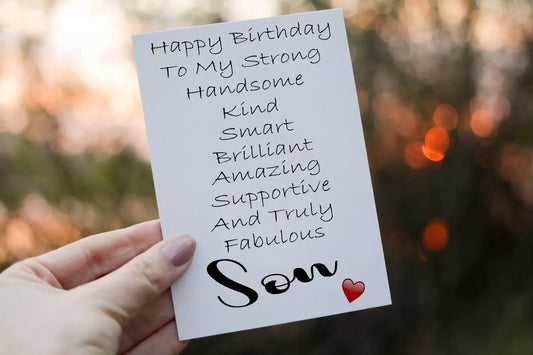 Happy Birthday
To My Strong
Handsome
Kind
Smart
Brilliant
Amazing
Supportive
And Truly
Fabulous
Son